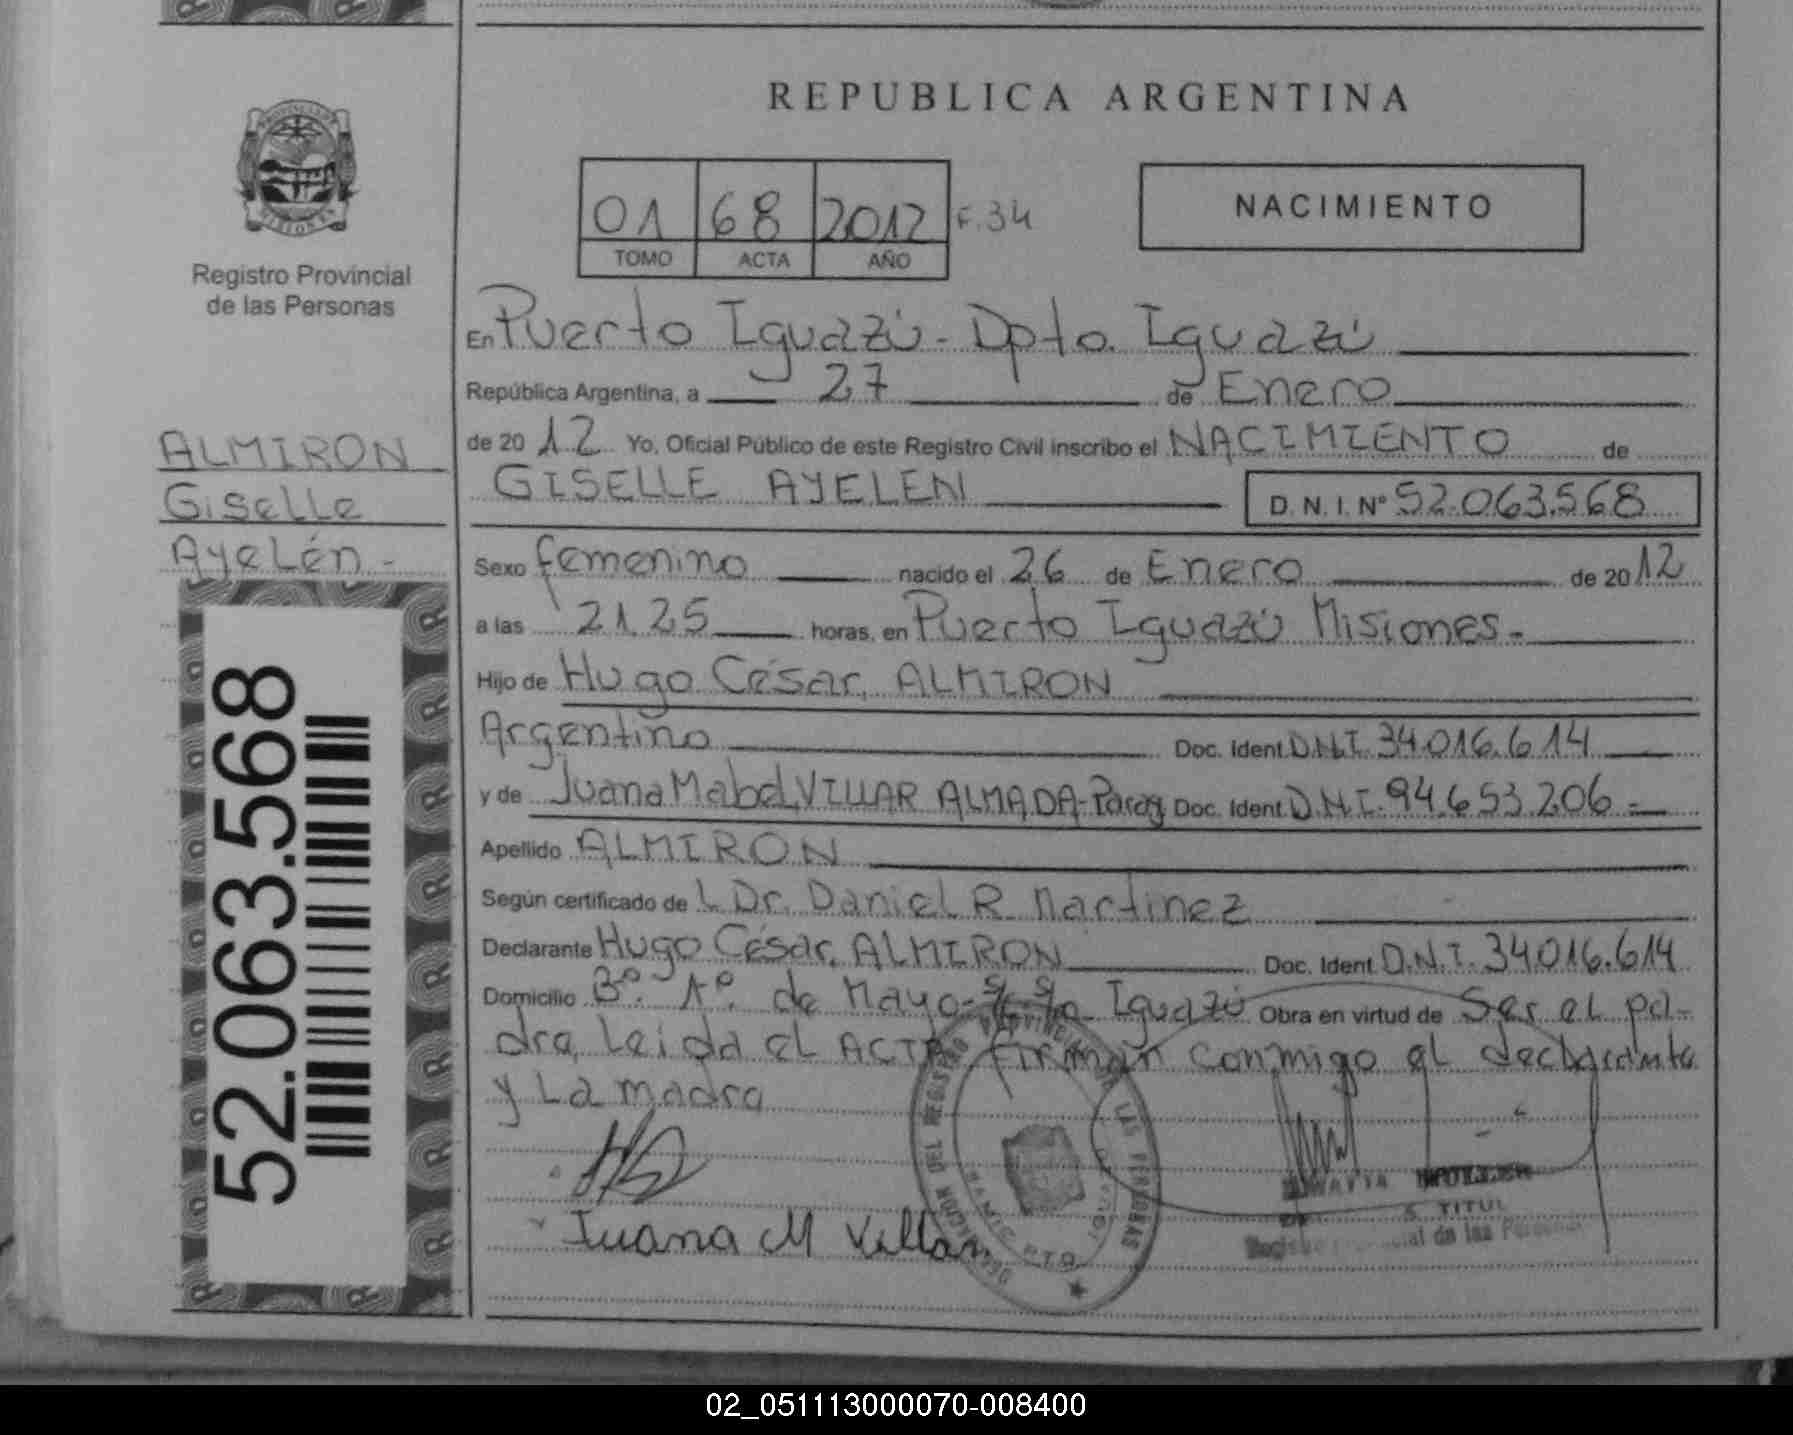 REPUBLICA ARGENTINA
Registro Provincial
de las Personas
01 68 2012 F.34
TOMO ACTA AÑO
NACIMIENTO
ALMIRON
Giselle
Ayelén -
52.063.568
En Puerto Iguazú - Dpto. Iguazú
República Argentina, a 27 de Enero
de 20 12 Yo, Oficial Público de este Registro Civil inscribo el NACIMIENTO de
GISELLE AYELEN D.N.I. Nº 52.063.568
Sexo femenino nacido el 26 de Enero de 20 12
a las 21.25 horas, en Puerto Iguazú Misiones.-
Hijo de Hugo César, ALMIRON
Argentino Doc. Ident. D.N.I. 34.016.614
y de Juana Mabel, VILLAR ALMADA-Parag Doc. Ident. D.N.I. 94.653.206.-
Apellido ALMIRON
Según certificado de L Dr. Daniel R. Martinez
Declarante Hugo César, ALMIRON Doc. Ident. D.N.I. 34.016.614
Domicilio Bº. 1º. de Mayo- Iguazú Obra en virtud de Ser el pa-
dre, Leida el ACTA firman conmigo el declarante
y La madre
Juana M Villar
DELEGACION DEL REGISTRO PROVINCIAL DE LAS PERSONAS
02_051113000070-008400